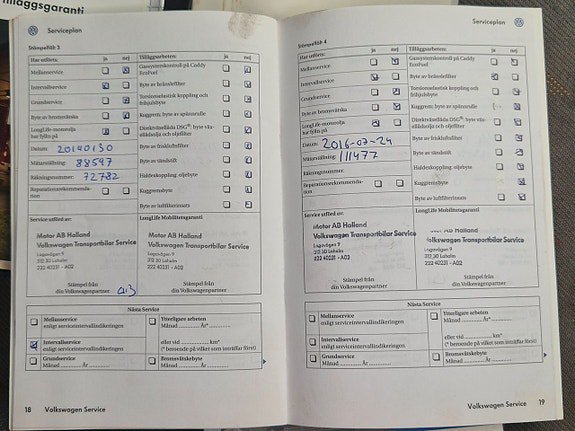 tilläggsgaranti
Serviceplan
Stämpelfält 3
Har utförts: ja nej
Mellanservice
Intervallservice
Grundservice
Byte av bromsvätska
LongLife-motorolja
har fyllts på
Datum: 20140130
Mätarställning: 88597
Räkningsnummer: 72782
Reparationsrekommenda-
tion
Tilläggsarbeten: ja nej
Gassystemkontroll på Caddy
EcoFuel
Byte av bränslefilter
Torsionselastisk koppling och
frihjulsbyte
Kuggrem: byte av spännrulle
Direktväxellåda DSG®: byte väx-
ellådsolja och oljefilter
Byte av friskluftsfilter
Byte av tändstift
Haldexkoppling: oljebyte
Kuggremsbyte
Byte av luftfilterinsats
Service utförd av:
Motor AB Halland
Volkswagen Transportbilar Service
Lagavägen 9
312 30 Laholm
222 40231 - A02
Stämpel från
din Volkswagenpartner
LongLife Mobilitetsgaranti
Motor AB Halland
Volkswagen Transportbilar Service
Lagavägen 9
312 30 Laholm
222 40231 - A02
Stämpel från
din Volkswagenpartner
Nästa Service
Mellanservice
enligt serviceintervallindikeringen
Intervallservice
enligt serviceintervallindikeringen
Grundservice
Månad ......... År ............
Ytterligare arbeten
Månad ............ År* ............
eller vid ............ km*
(* beroende på vilket som inträffar först)
Bromsvätskebyte
Månad ......... År ............
18 Volkswagen Service
Serviceplan
Stämpelfält 4
Har utförts: ja nej
Mellanservice
Intervallservice
Grundservice
Byte av bromsvätska
LongLife-motorolja
har fyllts på
Datum: 2016-07-24
Mätarställning: 111477
Räkningsnummer:
Reparationsrekommenda-
tion
Tilläggsarbeten: ja nej
Gassystemkontroll på Caddy
EcoFuel
Byte av bränslefilter
Torsionselastisk koppling och
frihjulsbyte
Kuggrem: byte av spännrulle
Direktväxellåda DSG®: byte väx-
ellådsolja och oljefilter
Byte av friskluftsfilter
Byte av tändstift
Haldexkoppling: oljebyte
Kuggremsbyte
Byte av luftfilterinsats
Service utförd av:
Motor AB Halland
Volkswagen Transportbilar Service
Lagavägen 9
312 30 Laholm
222 40231 - A02
Stämpel från
din Volkswagenpartner
LongLife Mobilitetsgaranti
Motor AB Halland
Volkswagen Transportbilar Service
Lagavägen 9
312 30 Laholm
222 40231 - A02
Stämpel från
din Volkswagenpartner
Nästa Service
Mellanservice
enligt serviceintervallindikeringen
Intervallservice
enligt serviceintervallindikeringen
Grundservice
Månad ......... År ............
Ytterligare arbeten
Månad ............ År* ............
eller vid ............ km*
(* beroende på vilket som inträffar först)
Bromsvätskebyte
Månad ......... År ............
Volkswagen Service 19